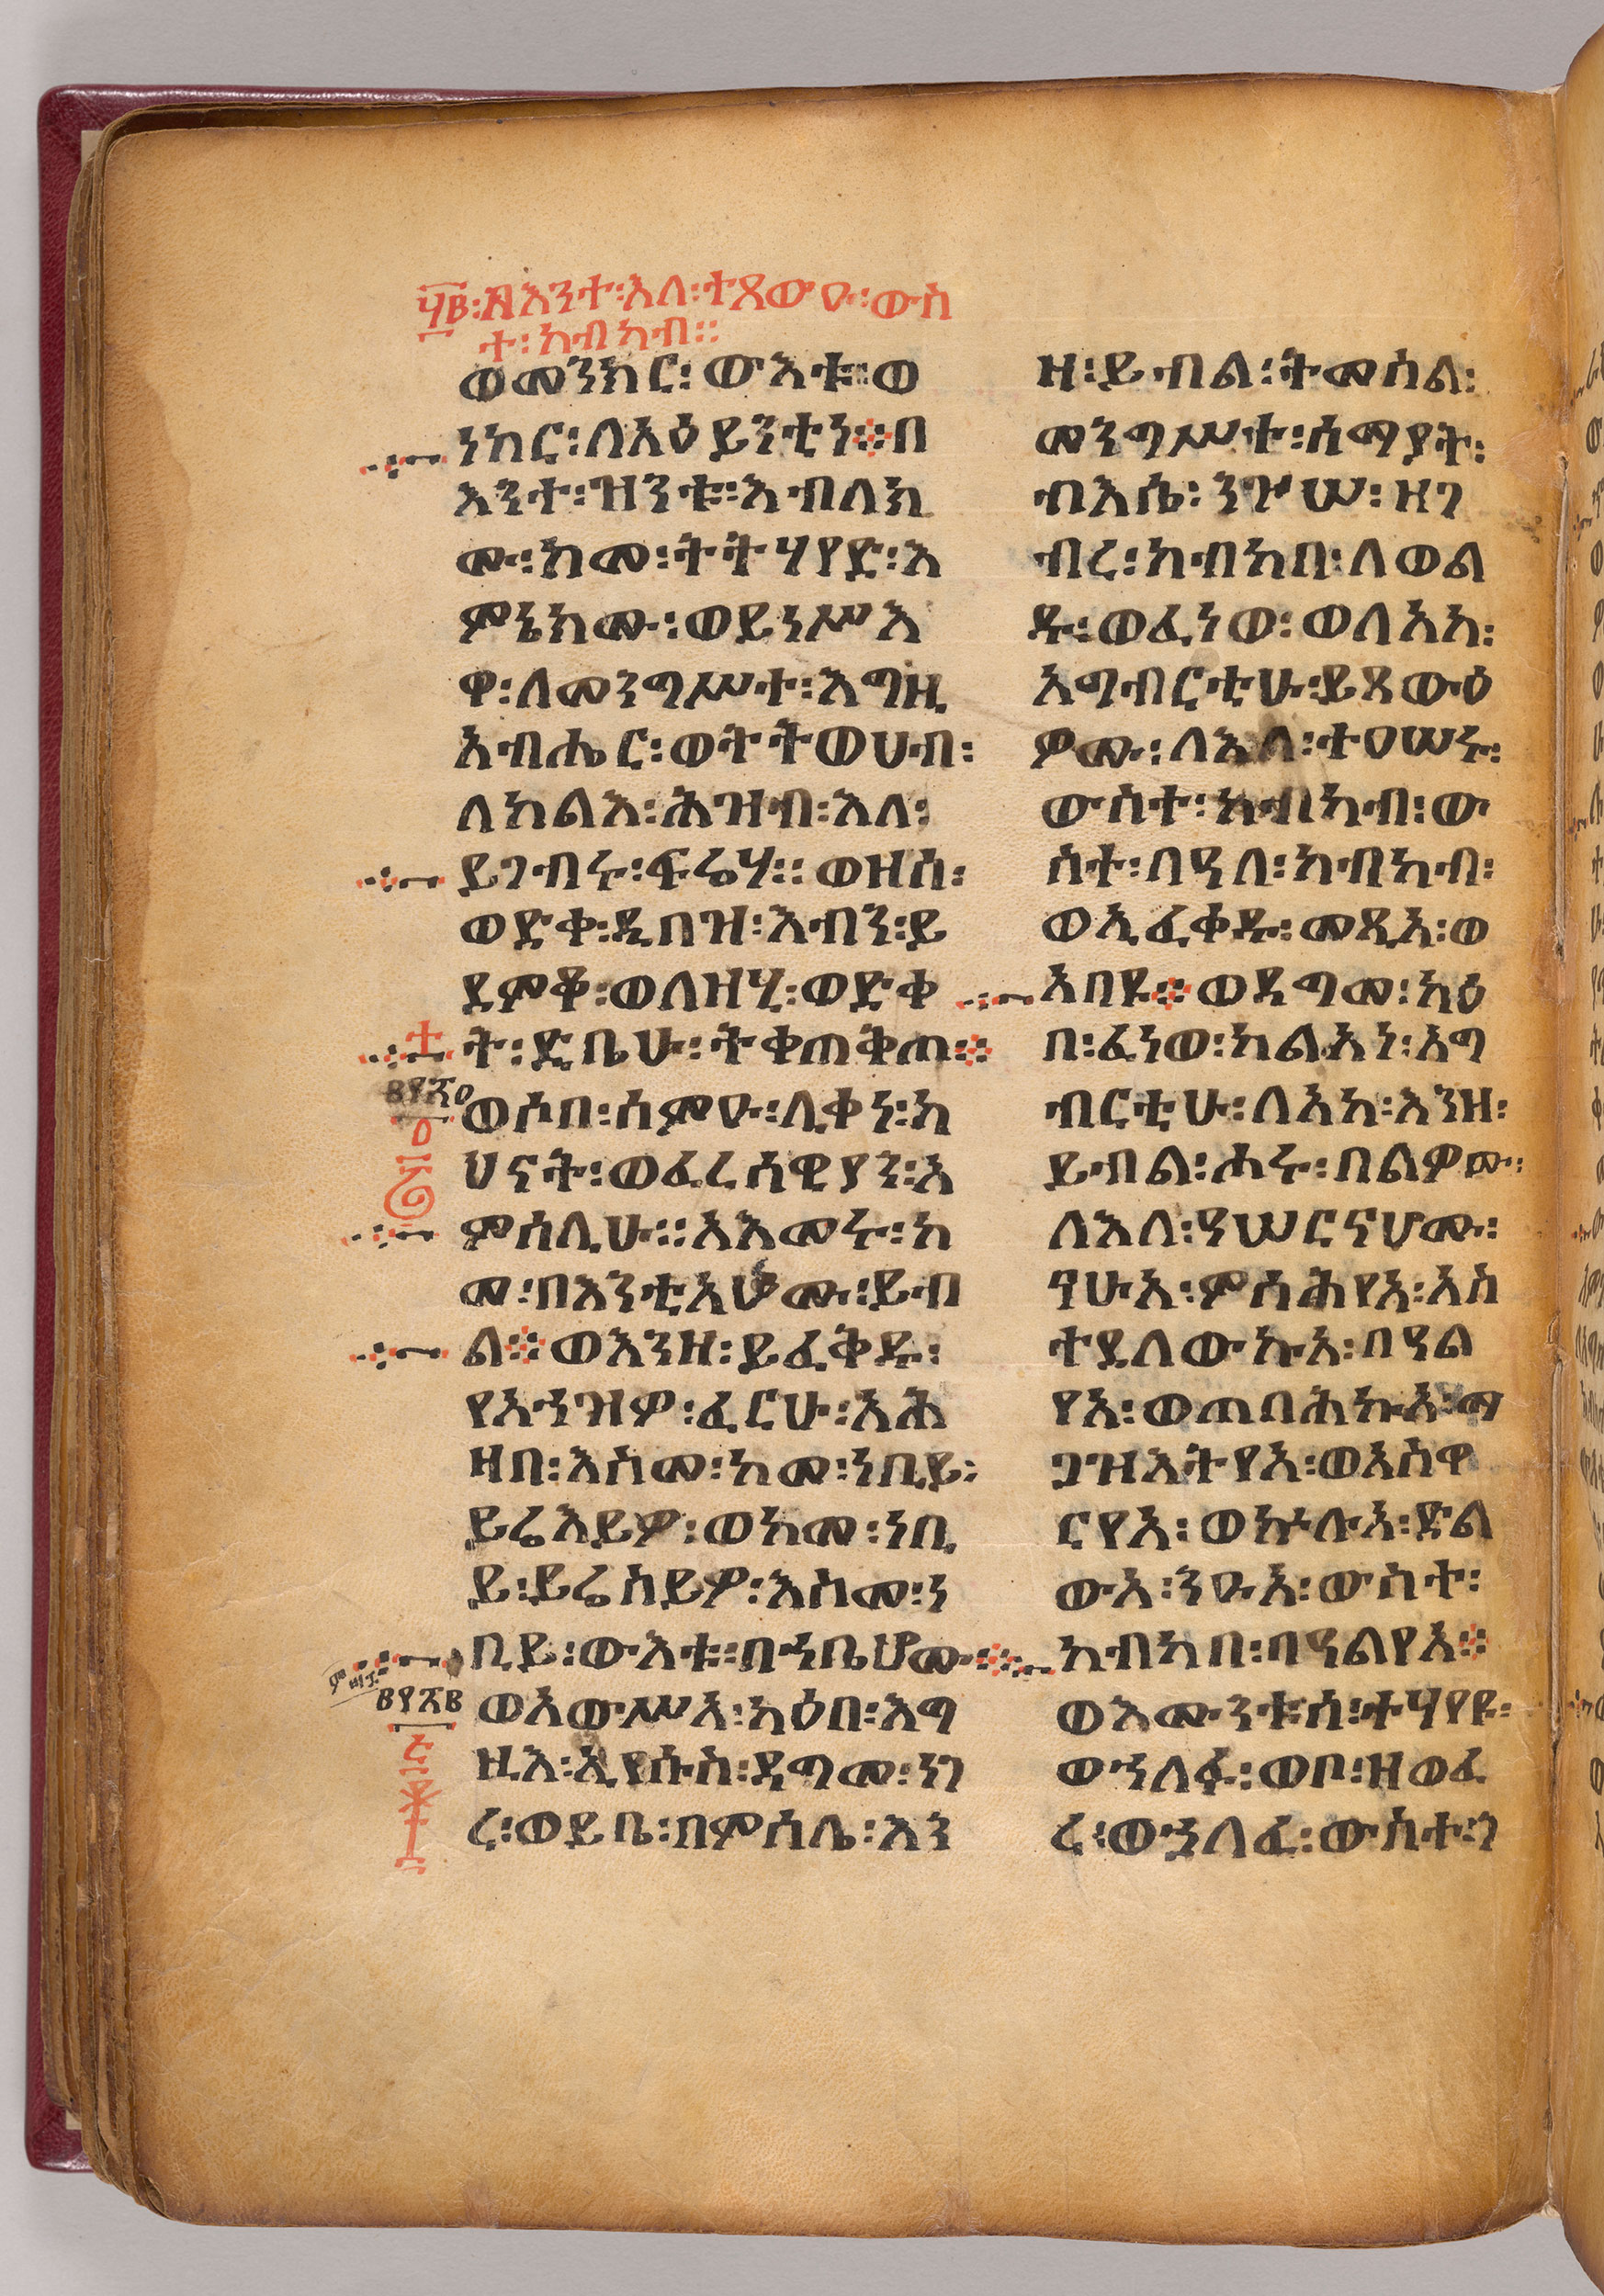 ፶፪፡በእንተ፡እለ፡ተጸውዑ፡ውስ
ተ፡ከብካብ፡፡
ወመንክር፡ውእቱ፡ወ
ነከር፡ለአዕይንቲነ፨በ
እንተ፡ዝንቱ፡እብለክ
ሙ፡ከመ፡ትትሃየድ፡እ
ምኔክሙ፡ወይነሥእ
ዋ፡ለመንግሥተ፡እግዚ
አብሔር፡ወትትወሀብ፡
ለካልእ፡ሕዝብ፡እለ፡
ይገብሩ፡ፍሬሃ፡፡ወዘሰ፡
ወድቀ፡ዲበዝ፡እብን፡ይ
ደምቆ፡ወለዘሂ፡ወድቀ
ት፡ድቤሁ፡ትቀጠቅጠ፨
ወሶበ፡ሰምዑ፡ሊቀነ፡ካ
ህናት፡ወፈረሰዊያን፡አ
ምሰሊሁ፡፡አእመሩ፡ከ
መ፡በእንቲአሆሙ፡ይብ
ል፨ወእንዘ፡ይፈቅዱ፡
የአኀዝዎ፡ፈርሁ፡አሕ
ዛበ፡እስመ፡ከመ፡ነቢይ፡
ይሬእይዎ፡ወከመ፡ነቢ
ይ፡ይሬስይዎ፡እስመ፡ነ
ቢይ፡ውእቱ፡በኀቤሆሙ፨
ወአውሥአ፡ካዕበ፡እግ
ዚእ፡ኢየሱስ፡ዳግመ፡ነገ
ረ፡ወይቤ፡በምሳሌ፡እን
ዘ፡ይብል፡ትመስል፡
መንግሥተ፡ሰማያት፡
ብእሴ፡ንጉሠ፡ዘገ
ብረ፡ከብካበ፡ለወል
ዱ፡ወፈነወ፡ወለአከ፡
አግብርቲሁ፡ይጸውዕ
ዎሙ፡ለእለ፡ተዐሠሩ፡
ውስተ፡ከብካብ፡ው
ስተ፡በዓለ፡ከብካብ፡
ወኢፈቀዱ፡መጺአ፡ወ
አበዩ፨ወዳግመ፡ካዕ
በ፡ፈነወ፡ካልአነ፡አግ
ብርቲሁ፡ለአከ፡እንዘ፡
ይብል፡ሑሩ፡በልዎሙ፡
ለእለ፡ዓሠርናሆሙ፡
ዋሁአ፡ምሳሕየአ፡አስ
ተደለውኩአ፡በዓል
የአ፡ወጠባሕኩአ፡ማ
ጐዝእትየአ፡ወአስዋ
ርየአ፡ወኵሉአ፡ድል
ውአ፡ንዑአ፡ውስተ፡
ከብካበ፡በዓልየአ፨
ወእሙንቱሰ፡ተሃየዩ፡
ወኀለፉ፡ወቦ፡ዘወፈ
ረ፡ወኀለፈ፡ውስተ፡ገ